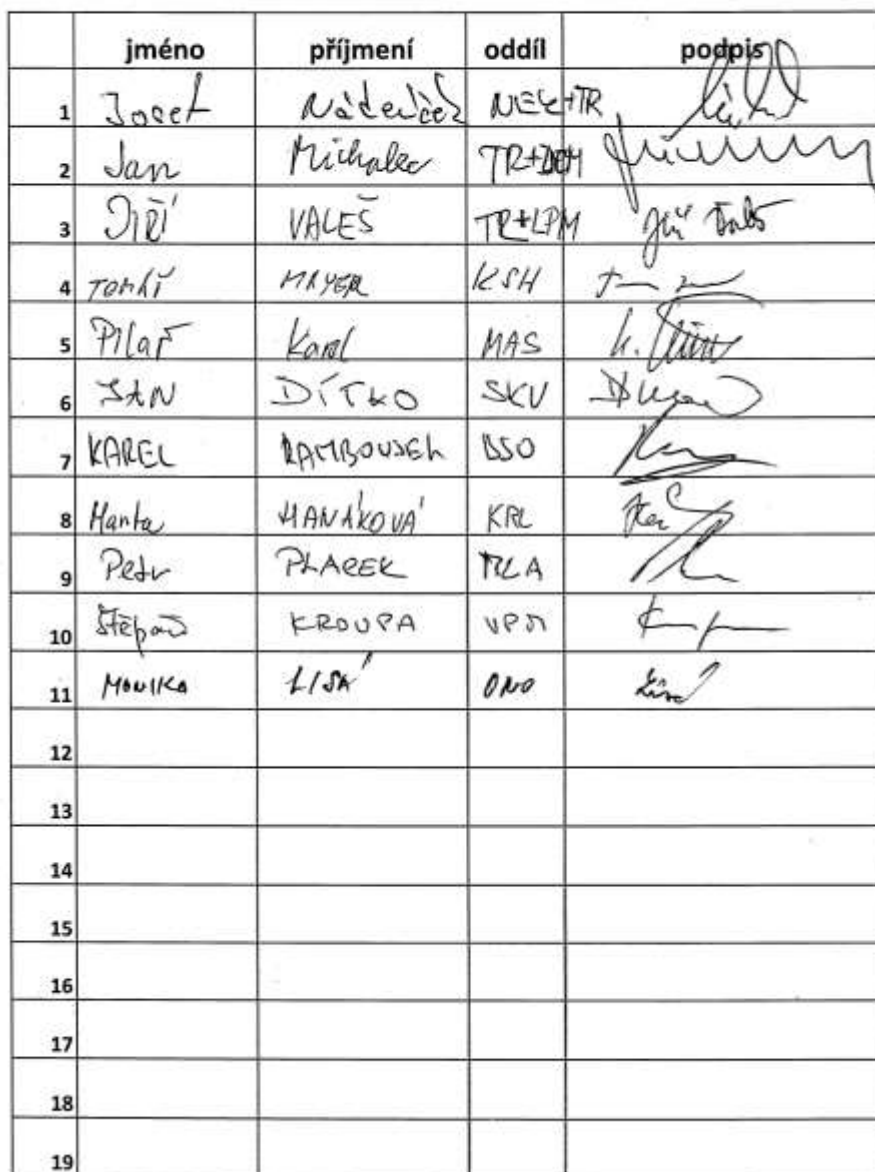 jméno příjmení oddíl podpis
1 Josef Nádeníček
2 Jan Michalec
3 JIŘÍ VALEŠ TR+LPM
4 TOMÁŠ MAYER KSH
5 Pilař Karel MAS K.
6 JAN DÍTKO SKV
7 KAREL RAMBOUSEK
8 HANÁKOVÁ KRL
9 Petr
10 Štěpán KROUPA VPM
11 MONIKA LISÁ ONO Lisá
12
13
14
15
16
17
18
19